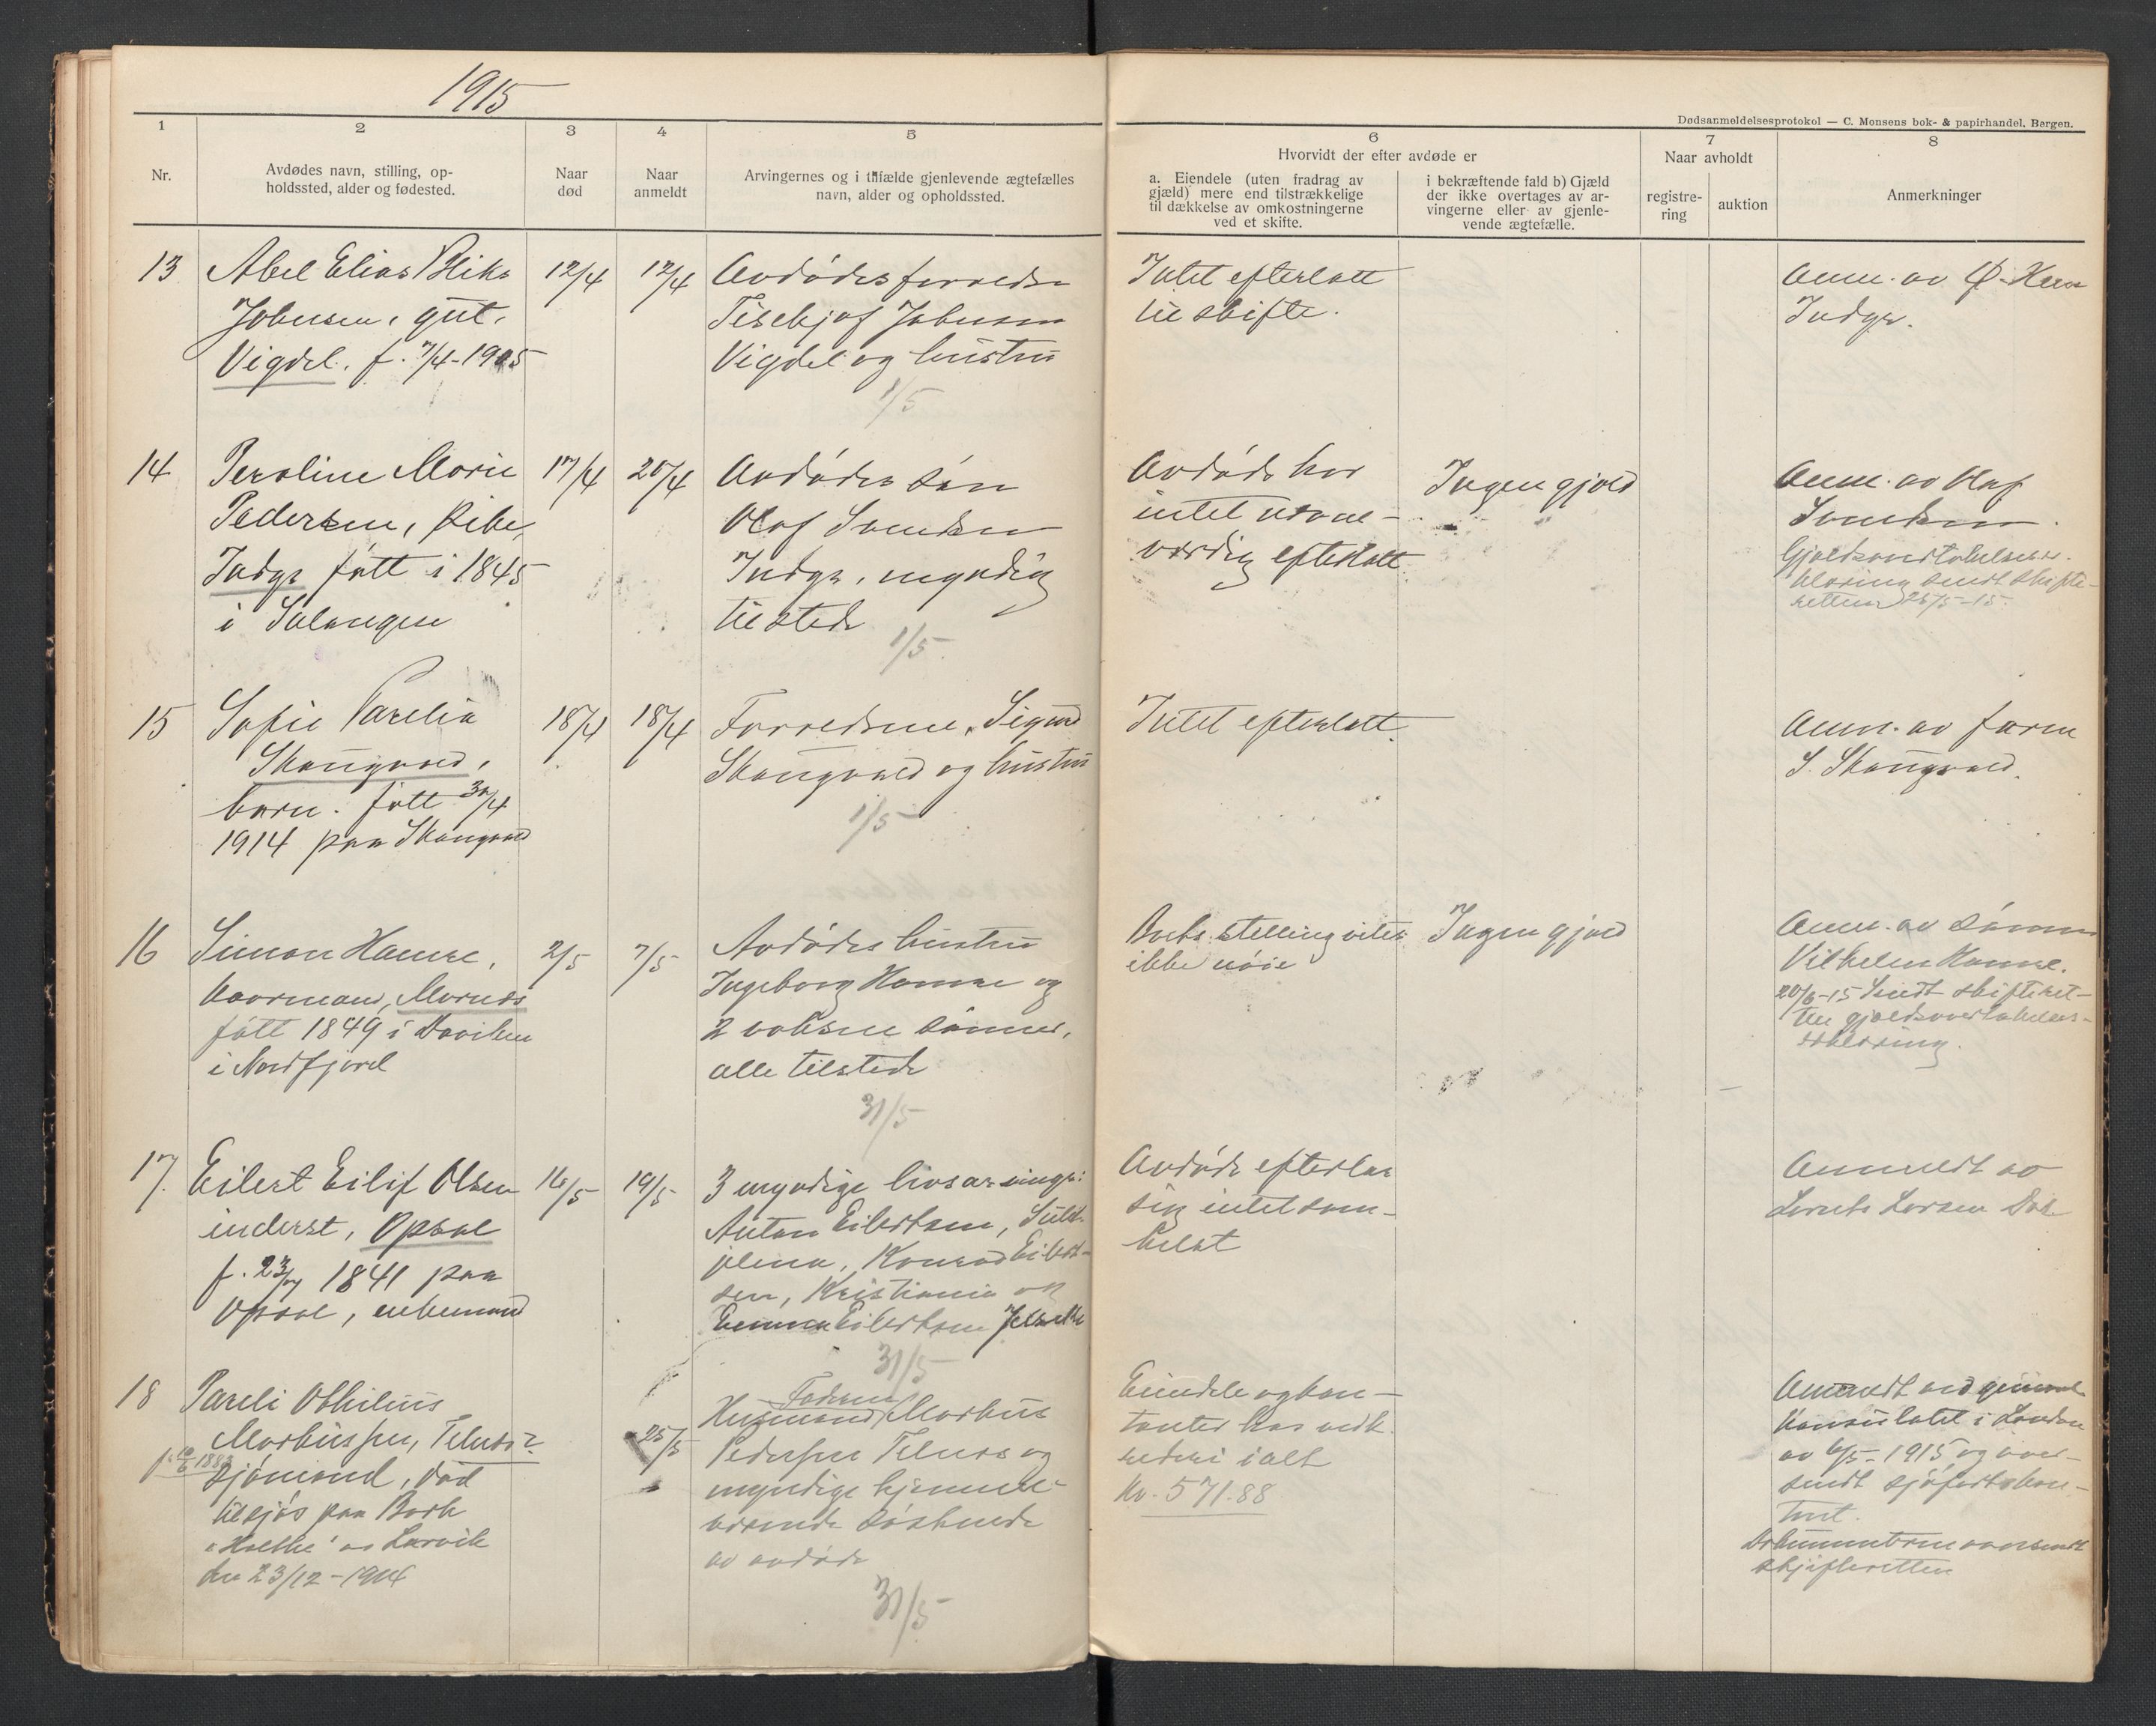 1915
Dødsanmeldelsesprotokol — C. Monsens bok- & papirhandel, Bergen.
1
2
3
4
5
6
7
8
Nr.
Avdødes navn, stilling, op-
holdssted, alder og fødested.
Naar
død
Naar
anmeldt
Arvingernes og i tilfælde gjenlevende ægtefælles
navn, alder og opholdssted.
Hvorvidt der efter avdøde er
a. Eiendele (uten fradrag av
gjæld) mere end tilstrækkelige
til dækkelse av omkostningerne
ved et skifte.
i bekræftende fald b) Gjæld
der ikke overtages av ar-
vingerne eller av gjenle-
vende ægtefælle.
Naar avholdt
registre-
ring
auktion
Anmerkninger
13
Abel Elias
Johnsen, gut,
Vigdel. f. 7/4-1915
12/4
12/4
Avdødes forældre
Johnsen
Vigdel og hustru
1/5
Intet efterlatt
til skifte.
Anm. av
Indgr.
14
Peroline Marie
Pedersen,
Indgr født i 1845
i Salangen
17/4
20/4
Avdødes søn
Olaf Svendsen
Indgr, myndig
tilstede
1/5
Avdøde har
intet nævne-
værdig efterlatt.
Ingen gjæld
Anm. av Olaf
Svendsen.
Gjældsovertakelseser-
klæring sendt skifte-
retten 25/5-15.
15
Sofie Parelia
Skangvard,
barn. født 30/4
1914 paa Skangvard
18/4
18/4
Forældrene, Sigurd
Skangvard og hustru
1/5
Intet efterlatt.
Anm. av faren
S. Skangvard.
16
Simon Hamre,
Moruds
født 1849 i Daviken
i Nordfjord
2/5
7/5
Avdødes hustru
Ingeborg Hamre og
2 voksne sønner,
alle tilstede
31/5
Boets stilling vites
ikke nøie
Ingen gjæld
Anm. av sønnen
Vilhelm Hamre.
20/6-15 Sendt skifteret-
ten gjældsovertakelses-
erklæring.
17.
Eilert Eilif Olsen
inderst, Opsal
f. 23/7 1841 paa
Opsal, enkemand
16/5
19/5
3 myndige livsarvinger:
Anton Eilertsen,
Konrad Eilert-
sen, Kristiania og
Eilertsen
31/5
Avdøde efterlar
sig intet som-
helst
Anmeldt av
Lorents Larsen
18
Pareli Othilius
Markussen,
sjømand, død
tilsjøs paa Bark
av Larvik
den 23/12-1914
25/5
Faderen
Husmand Markus
Pedersen og
myndige hjemme-
værende søskende
av avdøde
31/5
Eiendele og kon-
tanter hos vedk.
rederi ialt
Kr. 571.88
Anmeldt ved general
konsulatet i London
av 6/5-1915 og over-
sendt sjøfartskon-
toret.
Dokumenterne oversendt
skifteretten